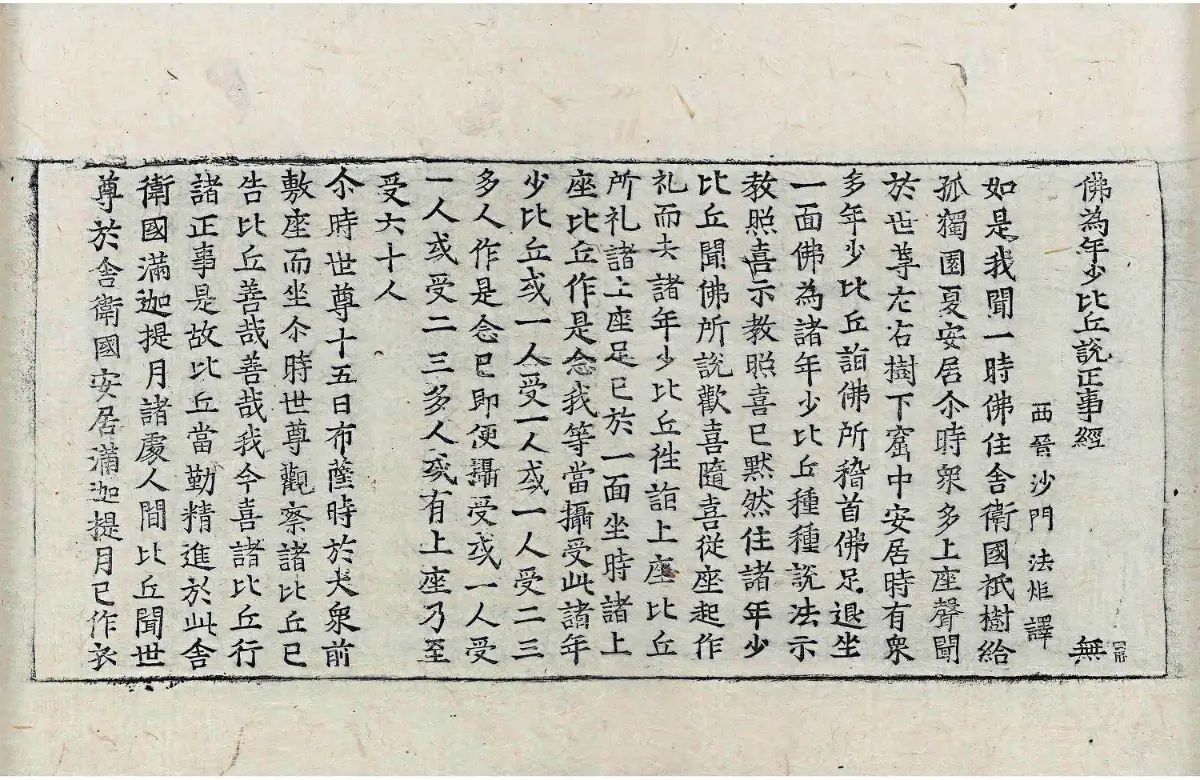 佛為年少比丘說正事經 無
西晉沙門 法炬 譯
如是我聞一時佛住舍衛國祇樹給
孤獨園夏安居尒時衆多上座聲聞
於世尊左右樹下窟中安居時有衆
多年少比丘詣佛所稽首佛足退坐
一面佛為諸年少比丘種種說法示
教照喜示教照喜已黙然住諸年少
比丘聞佛所說歡喜隨喜從座起作
礼而去諸年少比丘徃詣上座比丘
所礼諸上座足已於一面坐時諸上
座比丘作是念我等當攝受此諸年
少比丘或一人受一人或一人受二三
多人作是念已即便攝受或一人受
一人或受二三多人或有上座乃至
受六十人
尒時世尊十五日布薩時於大衆前
敷座而坐尒時世尊觀察諸比丘已
告比丘善哉善哉我今喜諸比丘行
諸正事是故比丘當勤精進於此舍
衛國滿迦提月諸處人間比丘聞世
尊於舍衛國安居滿迦提月已作衣